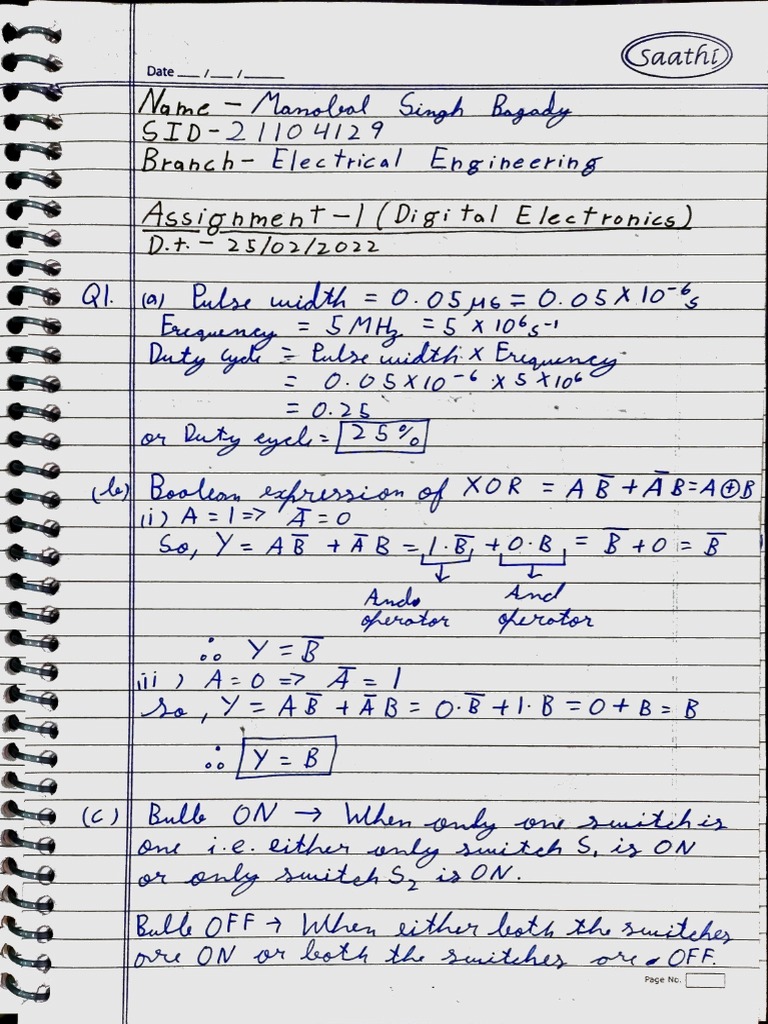 Saathi
Date __/__/____
Name - Manobal Singh Bagady
SID - 21104129
Branch - Electrical Engineering
Assignment - 1 (Digital Electronics)
D.t. - 25/02/2022
Q1. (a) Pulse width = 0.05 μs = 0.05 × 10⁻⁶ s
Frequency = 5 MHz = 5 × 10⁶ s⁻¹
Duty cycle = Pulse width × Frequency
= 0.05 × 10⁻⁶ × 5 × 10⁶
= 0.25
or Duty cycle = 25%
(b) Boolean expression of XOR = AB̅ + A̅B = A⊕B
(i) A = 1 => A̅ = 0
So, Y = AB̅ + A̅B = 1·B̅ + 0·B = B̅ + 0 = B̅
And And
operator operator
∴ Y = B̅
(ii) A = 0 => A̅ = 1
so, Y = AB̅ + A̅B = 0·B̅ + 1·B = 0 + B = B
∴ Y = B
(c) Bulb ON → When only one switch is
one i.e. either only switch S₁ is ON
or only switch S₂ is ON.
Bulb OFF → When either both the switches
are ON or both the switches are OFF.
Page No.